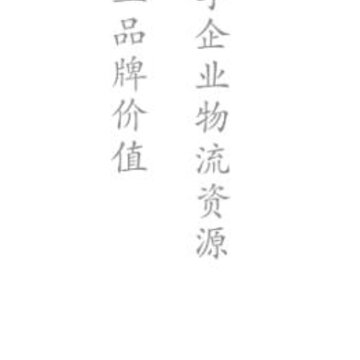 企业物流资源
品牌价值